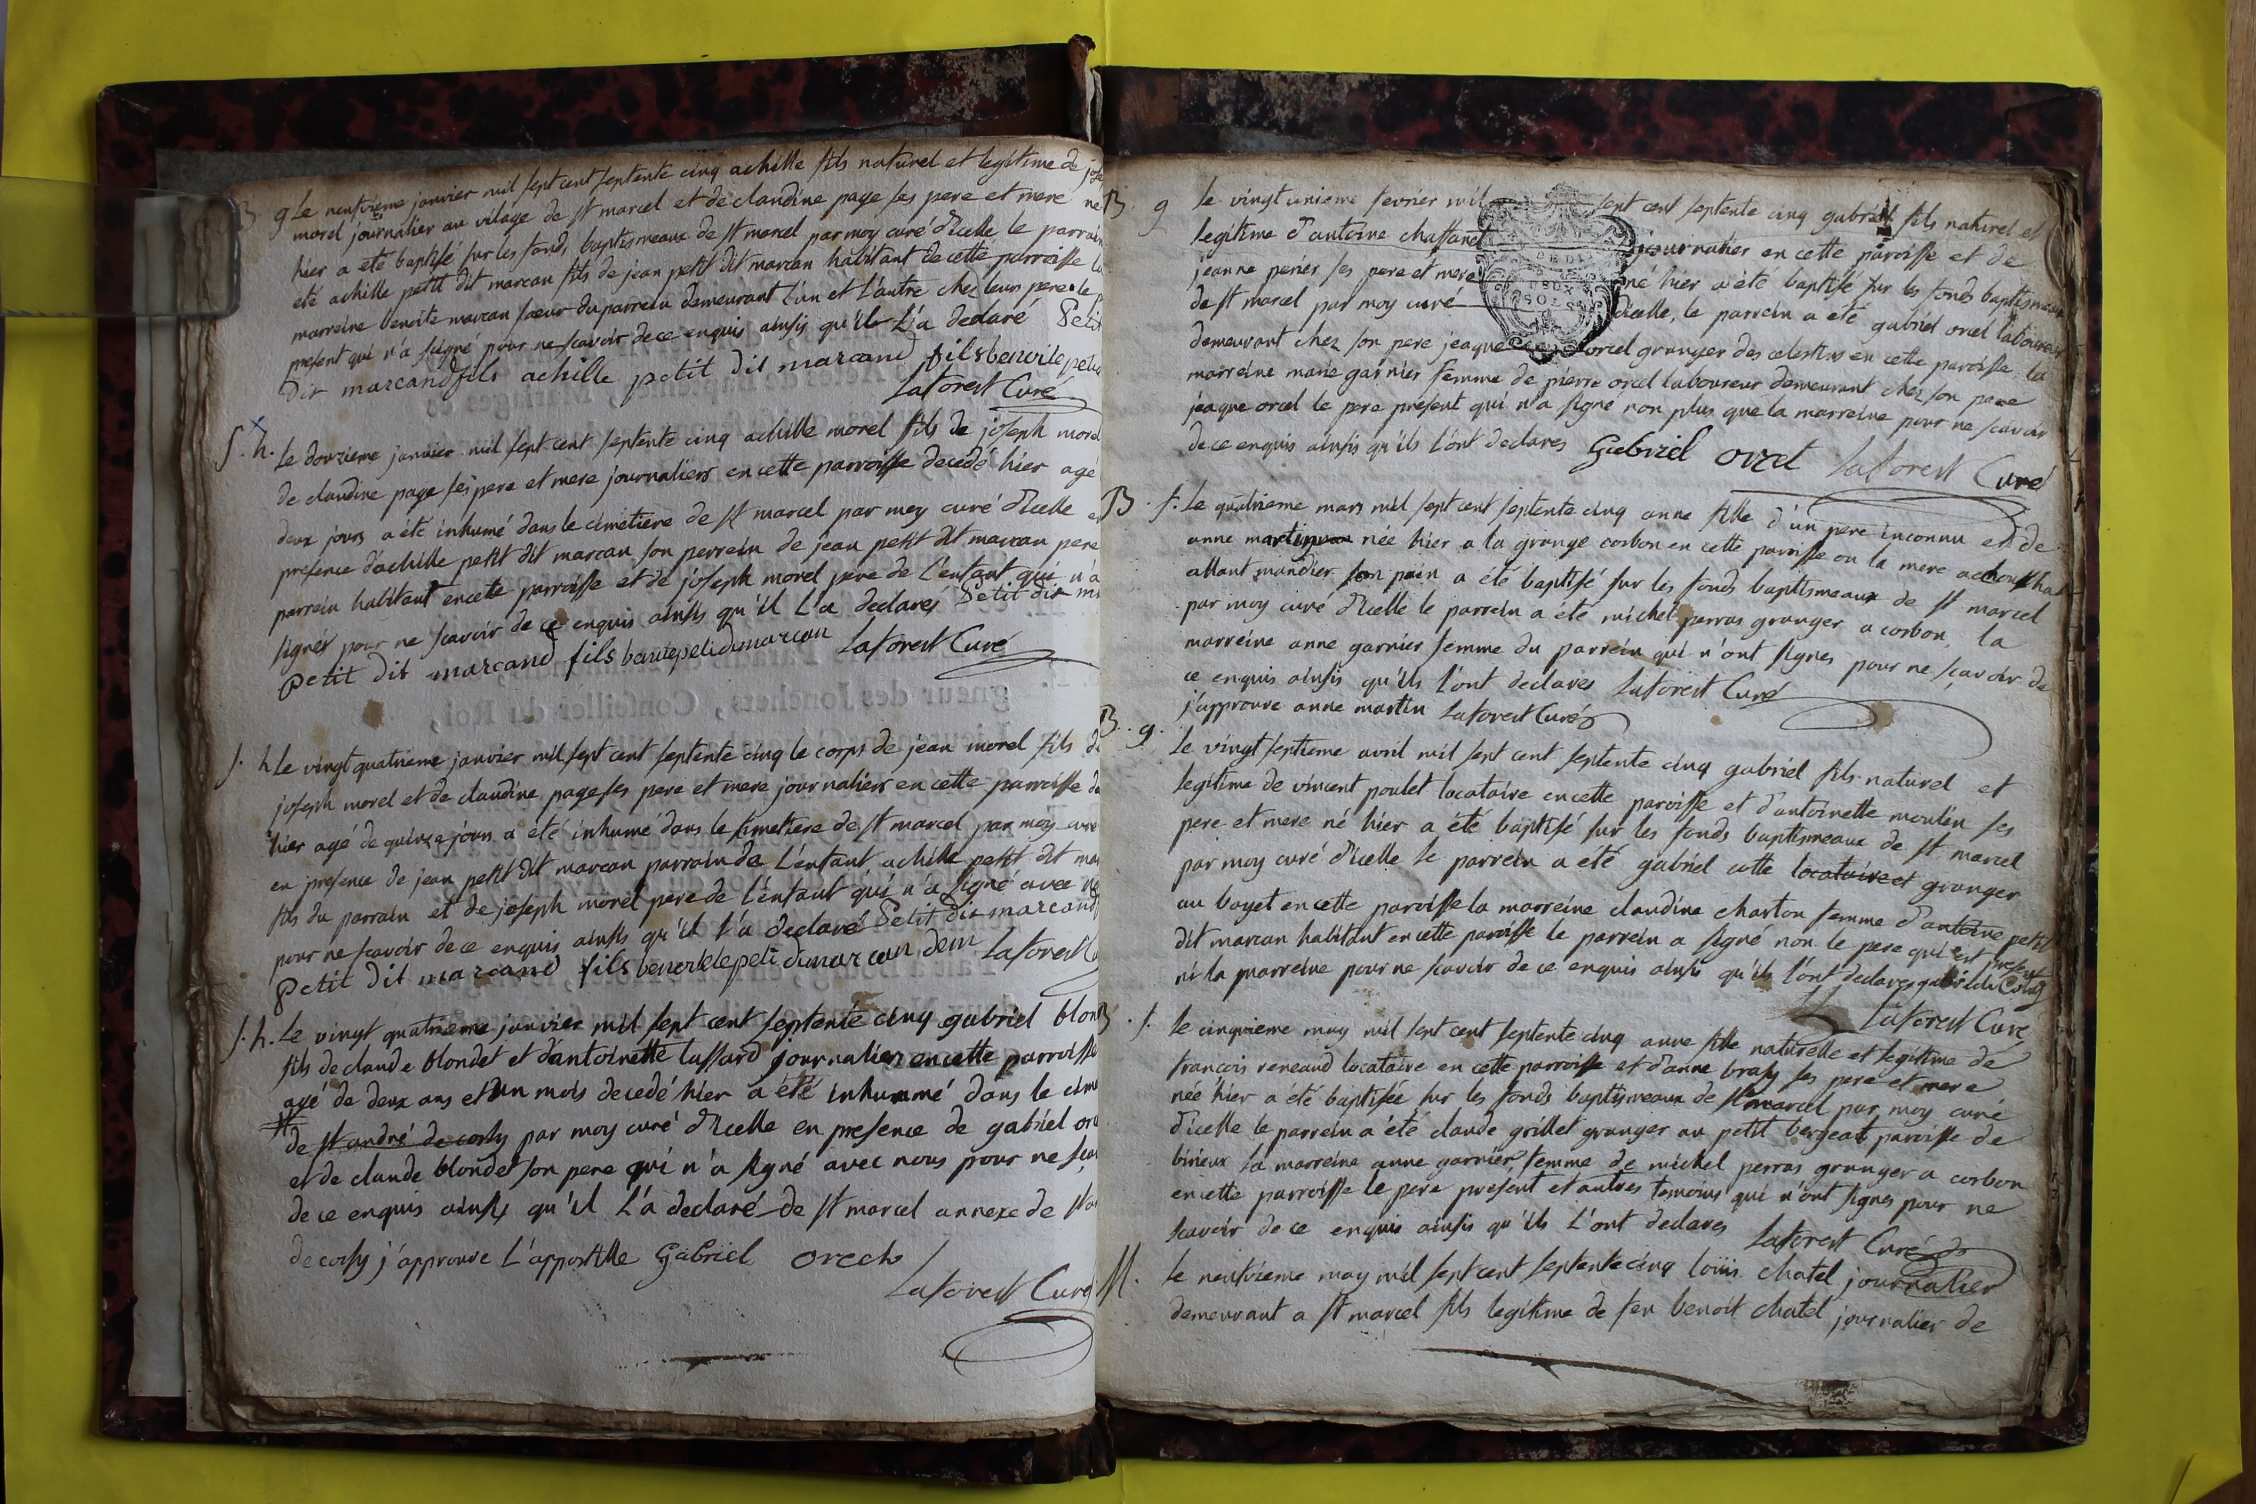 B. g Le neufvieme janvier mil sept cent septente cinq achille fils naturel et legitime de jose
morel journalier au vilage de st marcel et de claudine page ses pere et mere ne
hier a eté baptisé sur les fonds baptismeaux de st marcel par moy curé d'icelle le parrain
eté achille petit dit marcan fils de jean petit dit marcan habitant de cette parroisse la
marreine benoite marcan soeur du parrein demeurant l'un et l'autre chez leur pere. le p
present qui n'a signé pour ne scavoir de ce enquis ainsis qu'il l'a declaré Petit
Dit marcand fils achille petit dit marcand fils benoite petit
Laforest Curé
S. h. Le douzieme janvier mil sept cent septente cinq achille morel fils de joseph morel
de claudine page ses pere et mere journaliers en cette parroisse decedé hier agé
deux jours a été inhumé dans le cimetiere de st marcel par moy curé d'icelle en
presence d'achille petit dit marcan son perrein de jean petit dit marcan pere
parrein habitant en cete parroisse et de joseph morel pere de l'enfant qui n'a
signér pour ne scavoir de ce enquis ainsis qu'il l'a declarés Petit dit m
petit dit marcand fils benoite peti di marcan Laforest Curé
S. h Le vingt quatrieme janvier mil sept cent septente cinq le corps de jean morel fils d
joseph morel et de claudine page ses pere et mere journaliers en cette parroisse de
hier agé de quinze jours a eté inhumé dans le simetiere de st marcel par moy curé
en presence de jean petit dit marcan parrain de l'enfant achille petit dit mar
fils du parrain et de joseph morel pere de l'enfant qui n'a signé avec n
pour ne scavoir de ce enquis ainsis qu'il l'a declaré Petit dit marcand
petit dit marcand fils benoite peti di marcan Laforest C
S. h. Le vingt quatrieme janvier mil sept cent septente cinq gabriel blon
fils de claude blondet et d'antoinette tassard journalier en cette parroisse
agé de deux ans et un mois decedé hier a été inhummé dans le cime
de st andré de corsy par moy curé d'icelle en presence de gabriel or
et de claude blondet son pere qui n'a signé avec nous pour ne sça
de ce enquis ainsis qu'il l'a declaré de st marcel annexe de st a
de corsy j'approuve l'appostille Gabriel orcel
Laforest Curé
B. g Le vingt unieme fevrier mil sept cent septente cinq gabriel fils naturel et
legitime d'antoine chaffanet journalier en cette paroisse et de
jeanne perier ses pere et mere né hier a été baptisé sur les fonds baptismeaux
de st marcel par moy curé d'icelle, le parrein a eté gabriel orcel laboureur
demeurant chez son pere jeaque orcel granger des celestins en cette paroisse la
marreine marie garnier femme de pierre orcel laboureur demeurant chez son pere
jeaque orcel le pere present qui n'a signé non plus que la marreine pour ne scavoir
de ce enquis ainsis qu'ils l'ont declares Gabriel orcel Laforest Curé
B. f. Le quatrieme mars mil sept cent septente cinq anne fille d'un pere inconnu et de
anne martin née hier a la grange corbon en cette paroisse ou la mere
allant mandier son pain a été baptisé sur les fonds baptismeaux de st marcel
par moy curé d'icelle le parrein a été michel perras granger a corbon la
marreine anne garnier femme du parrein qui n'ont signes pour ne sçavoir de
ce enquis ainsis qu'ils l'ont declares Laforest Curé
j'approuve anne martin Laforest Curé
B. g. Le vingt septieme avril mil sept cent septente cinq gabriel fils naturel et
legitime de vincent poulet locataire en cette paroisse et d'antoinette moulin ses
pere et mere né hier a été baptisé sur les fonds baptismeaux de st marcel
par moy curé d'icelle le parrein a eté gabriel cotte locataire et granger
au boyet en cette paroisse la marreine claudine charton femme d'antoine petit
dit marcan habitant en cette paroisse le parrein a signé non le pere qui est present
ni la marreine pour ne scavoir de ce enquis ainsis qu'ils l'ont declares
Laforest Curé
B. f. Le cinquieme may mil sept cent septente cinq anne fille naturelle et legitime de
francois reneaud locataire en cette parroisse et d'anne ses pere et mere
née hier a été baptisée sur les fonds baptismeaux de st marcel par moy curé
d'icelle le parrein a été claude grillet granger au petit bergeat paroisse de
birieux la marreine anne garnier femme de michel perras granger a corbon
en cette parroisse le pere present et autres temoins qui n'ont signes pour ne
scavoir de ce enquis ainsis qu'ils l'ont declares Laforest Curé
M. Le neufvieme may mil sept cent septente cinq loüis chatel journalier
demeurant a st marcel fils legitime de feu benoit chatel journalier de